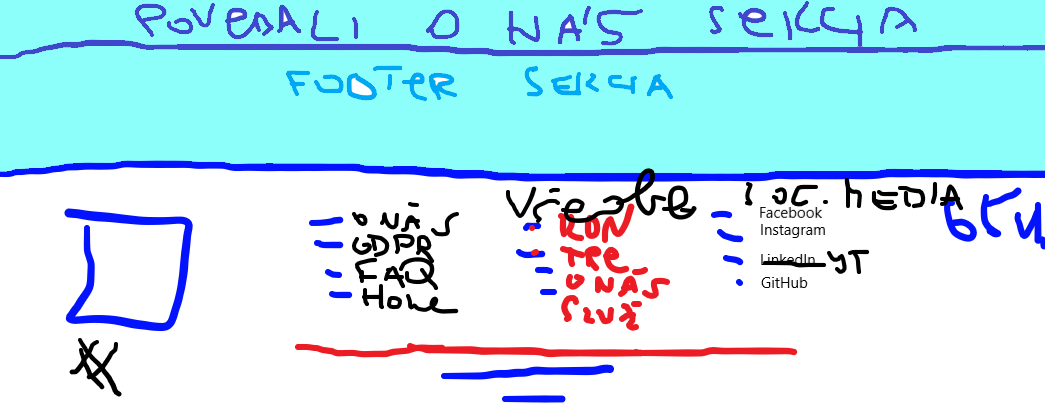 POVEDALI O NÁS SEKCIA
FOOTER SEKCIA
O NÁS
GDPR
FAQ
HOME
KON
TPE
O NÁS
SOC. MEDIA
Facebook
Instagram
LinkedIn YT
GitHub